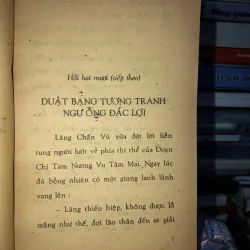 Hồi hai mươi (tiếp theo)
DUẬT BẠNG TƯƠNG TRANH
NGƯ ÔNG ĐẮC LỢI
Lăng Chấn Vũ vừa dứt lời liền
tung người lướt về phía thi thể của Đoạn
Chi Tam Nương Vu Tâm Mai. Ngay lúc
đó bỗng nhiên có một giọng lanh lảnh
vang lên :
– Lăng thiếu hiệp, không được lỗ
mãng như thế, đợi lão thân đến sẽ giải
7